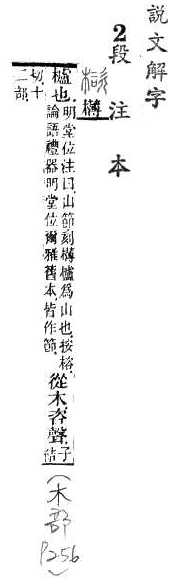 説文解字
2段注本
㮞 欂
櫨也
明堂位注曰山節刻欂櫨爲山也按㮞
論語禮器明堂位爾雅舊本皆作節
從木咨聲
子
結
切十
二部
(木部
P256)